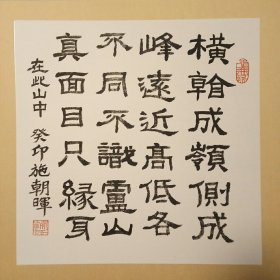 橫看成嶺側成
峰遠近高低各
不同不識盧山
真面目只緣身
在此山中 癸卯施朝暉